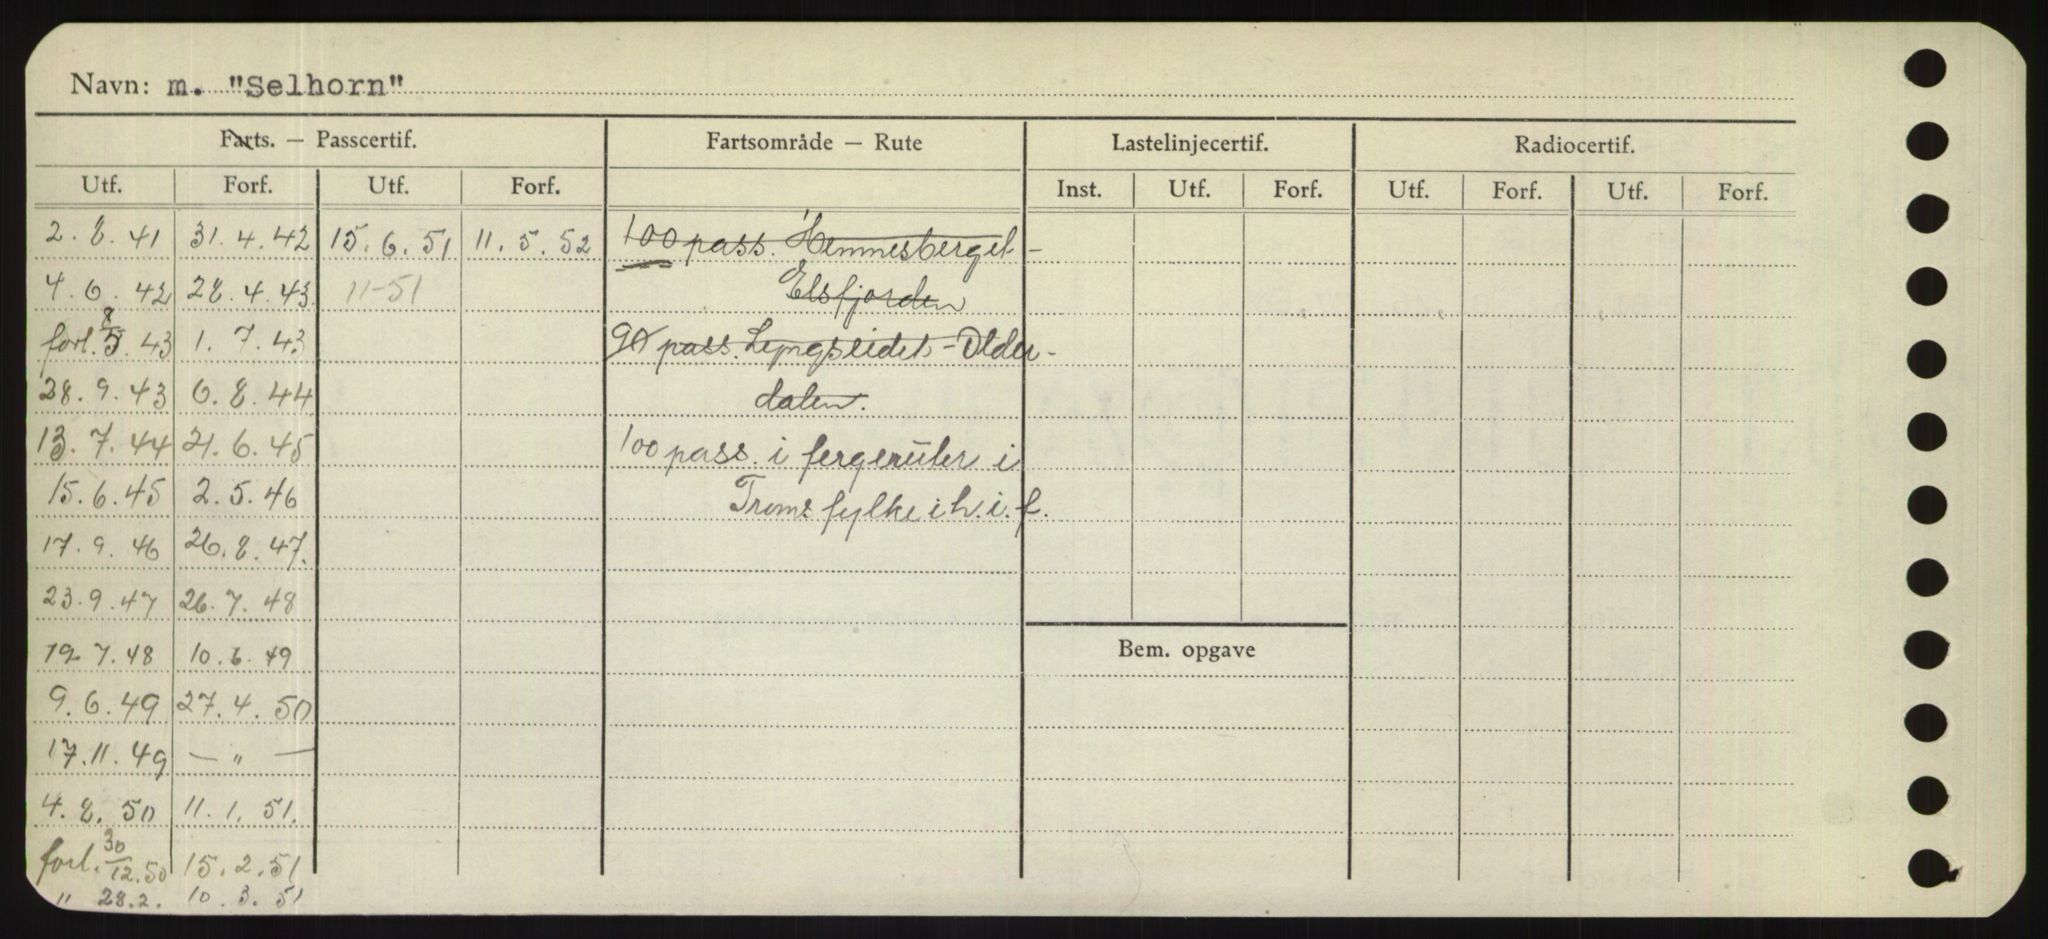 Navn: m. "Selhorn"
Farts. — Passcertif. Fartsområde — Rute Lastelinjecertif. Radiocertif.
Utf. Forf. Utf. Forf. Inst. Utf. Forf. Utf. Forf. Utf. Forf.
2. 8. 41 31. 4. 42 15. 6. 51 11. 5. 52 100 pass. Hemnesberget -
4. 6. 42 28. 4. 43. 11-51 Elsfjorden
forl. 8/5. 43 1. 7. 43 90 pass. Lyngseidet - Older-
28. 9. 43 6. 8. 44 dalen.
13. 7. 44 21. 6. 45 100 pass. i fergeruter i
15. 6. 45 2. 5. 46 Troms fylke i h. i. f.
17. 9. 46 26. 8. 47.
23. 9. 47 26. 7. 48
19 7. 48 10. 6. 49
Bem. opgave
9. 6. 49 27. 4. 50
17. 11. 49 — " —
4. 8. 50 11. 1. 51.
forl. 30/12. 50 15. 2. 51
" 28. 2. 10. 3. 51